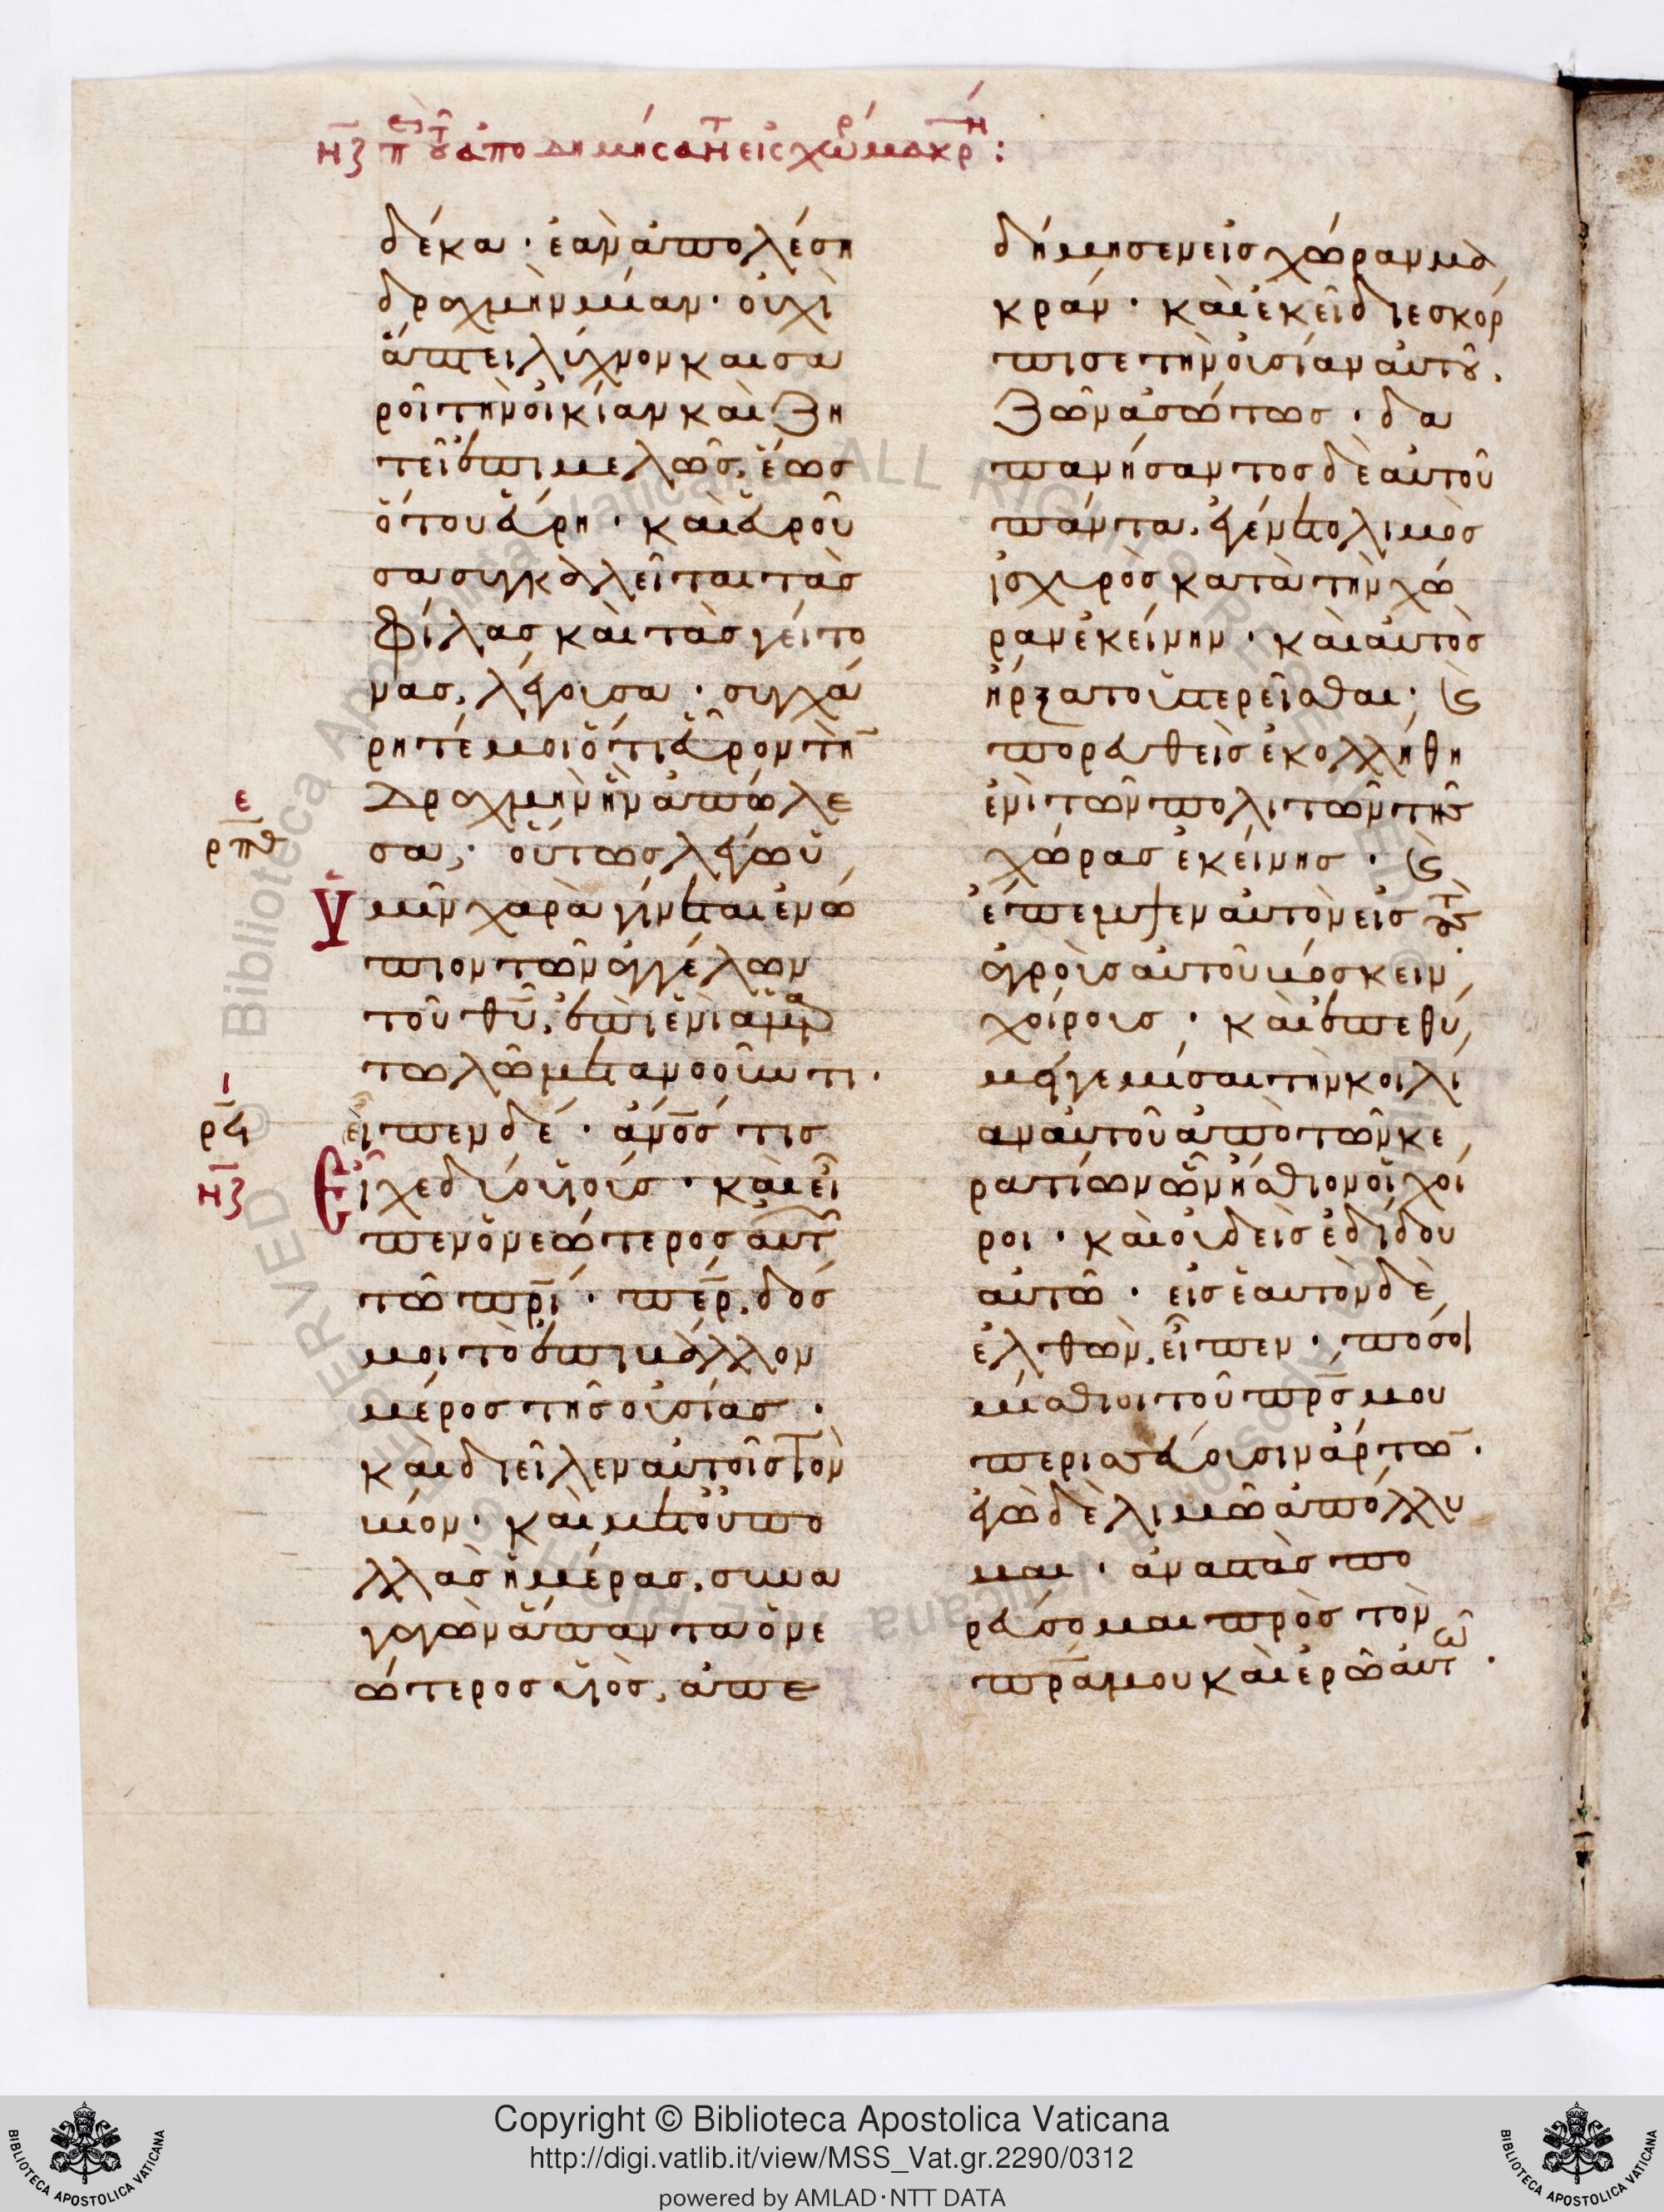 ΝΖ π τοῦ ἀποδημήσαντ εἰς χώρ μακρ :
δέκα · ἐὰν ἀπολέση
δραχμὴν μίαν · οὐχὶ
ἅπτει λύχνον καὶ σα
ροῖ τὴν οἰκίαν καὶ ζη
τεῖ ἐπιμελῶς, ἕως
ὅτου εὕρη · καὶ εὑροῦ
σα συγκαλεῖται τὰς
φίλας καὶ τὰς γείτο
νας, λέγουσα · συγχά
ρητέ μοι ὅτι εὗρον τὴ
δραχμὴν ἣν ἀπώλε
σα, · οὕτως λέγω ὑ
ε
ρπθ
μῖν χαρὰ γίνεται ἐνώ
πιον τῶν ἀγγέλων
τοῦ θυ, ἐπὶ ἑνὶ ἁμαρ
τωλῶ μετανοοῦντι ·
ι
ρϟ
εἶπεν δέ · ἀνός τις
ΝΖ
εἶχε δύο υἱούς · καὶ εἶ
πεν ὁ νεώτερος αὐτ
τῶ πρι · πέρ, δός
μοι τὸ ἐπιβάλλον
μέρος τῆς οὐσίας ·
καὶ διεῖλεν αὐτοῖς τὸν
βίον · καὶ μετ οὐ πο
λλὰς ἡμέρας, συνα
γαγὼν ἅπαντα ὁ νε
ώτερος υἱὸς, ἀπε
δήμησεν εἰς χώραν μα
κράν · καὶ ἐκεῖ διεσκόρ
πισε τὴν οὐσίαν αὐτοῦ,
ζῶν ἀσώτως · δα
πανήσαντος δὲ αὐτοῦ
πάντα, ἐγένετο λιμὸς
ἰσχυρὸς κατὰ τὴν χώ
ραν ἐκείνην · καὶ αὐτὸς
ἤρξατο ὑστερεῖσθαι · ϗ
πορευθεὶς ἐκολλήθη
ἑνὶ τῶν πολιτῶν τῆς
χώρας ἐκείνης · ϗ
ἔπεμψεν αὐτὸν εἰς τοὺς
ἀγροὺς αὐτοῦ βόσκειν
χοίρους · καὶ ἐπεθύ
μει γεμίσαι τὴν κοιλί
αν αὐτοῦ ἀπὸ τῶν κε
ρατίων ὧν ἤσθιον οἱ χοῖ
ροι · καὶ οὐδεὶς ἐδίδου
αὐτῶ · εἰς ἑαυτὸν δὲ
ἐλθὼν, εἶπεν · πόσοι
μίσθιοι τοῦ πρς μου
περισσεύουσιν ἄρτων ·
ἐγὼ δὲ λιμῶ ἀπόλλυ
μαι · ἀναστὰς πο
ρεύσομαι πρὸς τὸν
πρα μου καὶ ἐρῶ αὐτῶ ·
Copyright © Biblioteca Apostolica Vaticana
http://digi.vatlib.it/view/MSS_Vat.gr.2290/0312
powered by AMLAD·NTT DATA
BIBLIOTECA APOSTOLICA VATICANA
BIBLIOTECA APOSTOLICA VATICANA